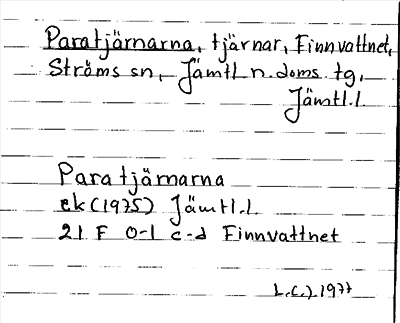 Paratjärnarna, tjärnar, Finnvattnet,
Ströms sn, Jämtl n. doms tg,
Jämtl.l.
Paratjärnarna
ek (1975) Jämtl.l.
21 F 0-1 c-d Finnvattnet
L.C.J. 1977